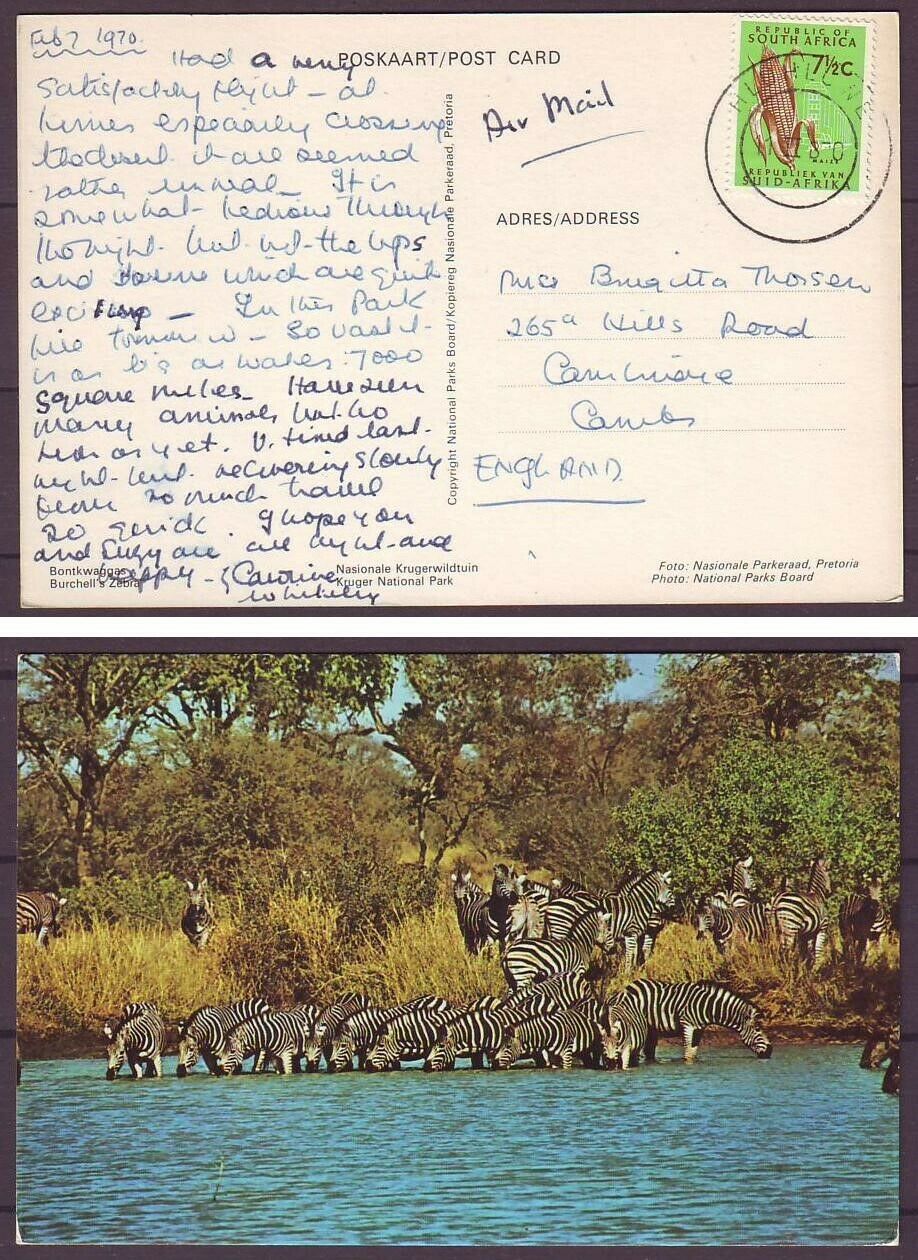 Feb 7 1970.
POSKAART/POST CARD
REPUBLIC OF
SOUTH AFRICA
7½C
MAIZE
REPUBLIEK VAN
SUID-AFRIKA
Air Mail
Had a very
Satisfactory flight – at
times especially crossing
the desert it all seemed
rather unreal – It is
somewhat tedious through
the night but not the ups
and downs which are quite
exciting – In this Park
till tomorrow – So vast it
is as big as Wales : 7000
Square miles – Have seen
many animals but no
lion as yet. V. tired last
night but recovering slowly
from so much travel
so quick. I hope you
and Suzy are all right and
happy – Caroline
Whiteley
ADRES/ADDRESS
Miss Brigitta Thossen
265a Hills Road
Cambridge
Cambs
ENGLAND
Copyright National Parks Board/Kopiereg Nasionale Parkeraad, Pretoria
Bontkwaggas
Burchell's Zebra
Nasionale Krugerwildtuin
Kruger National Park
Foto: Nasionale Parkeraad, Pretoria
Photo: National Parks Board